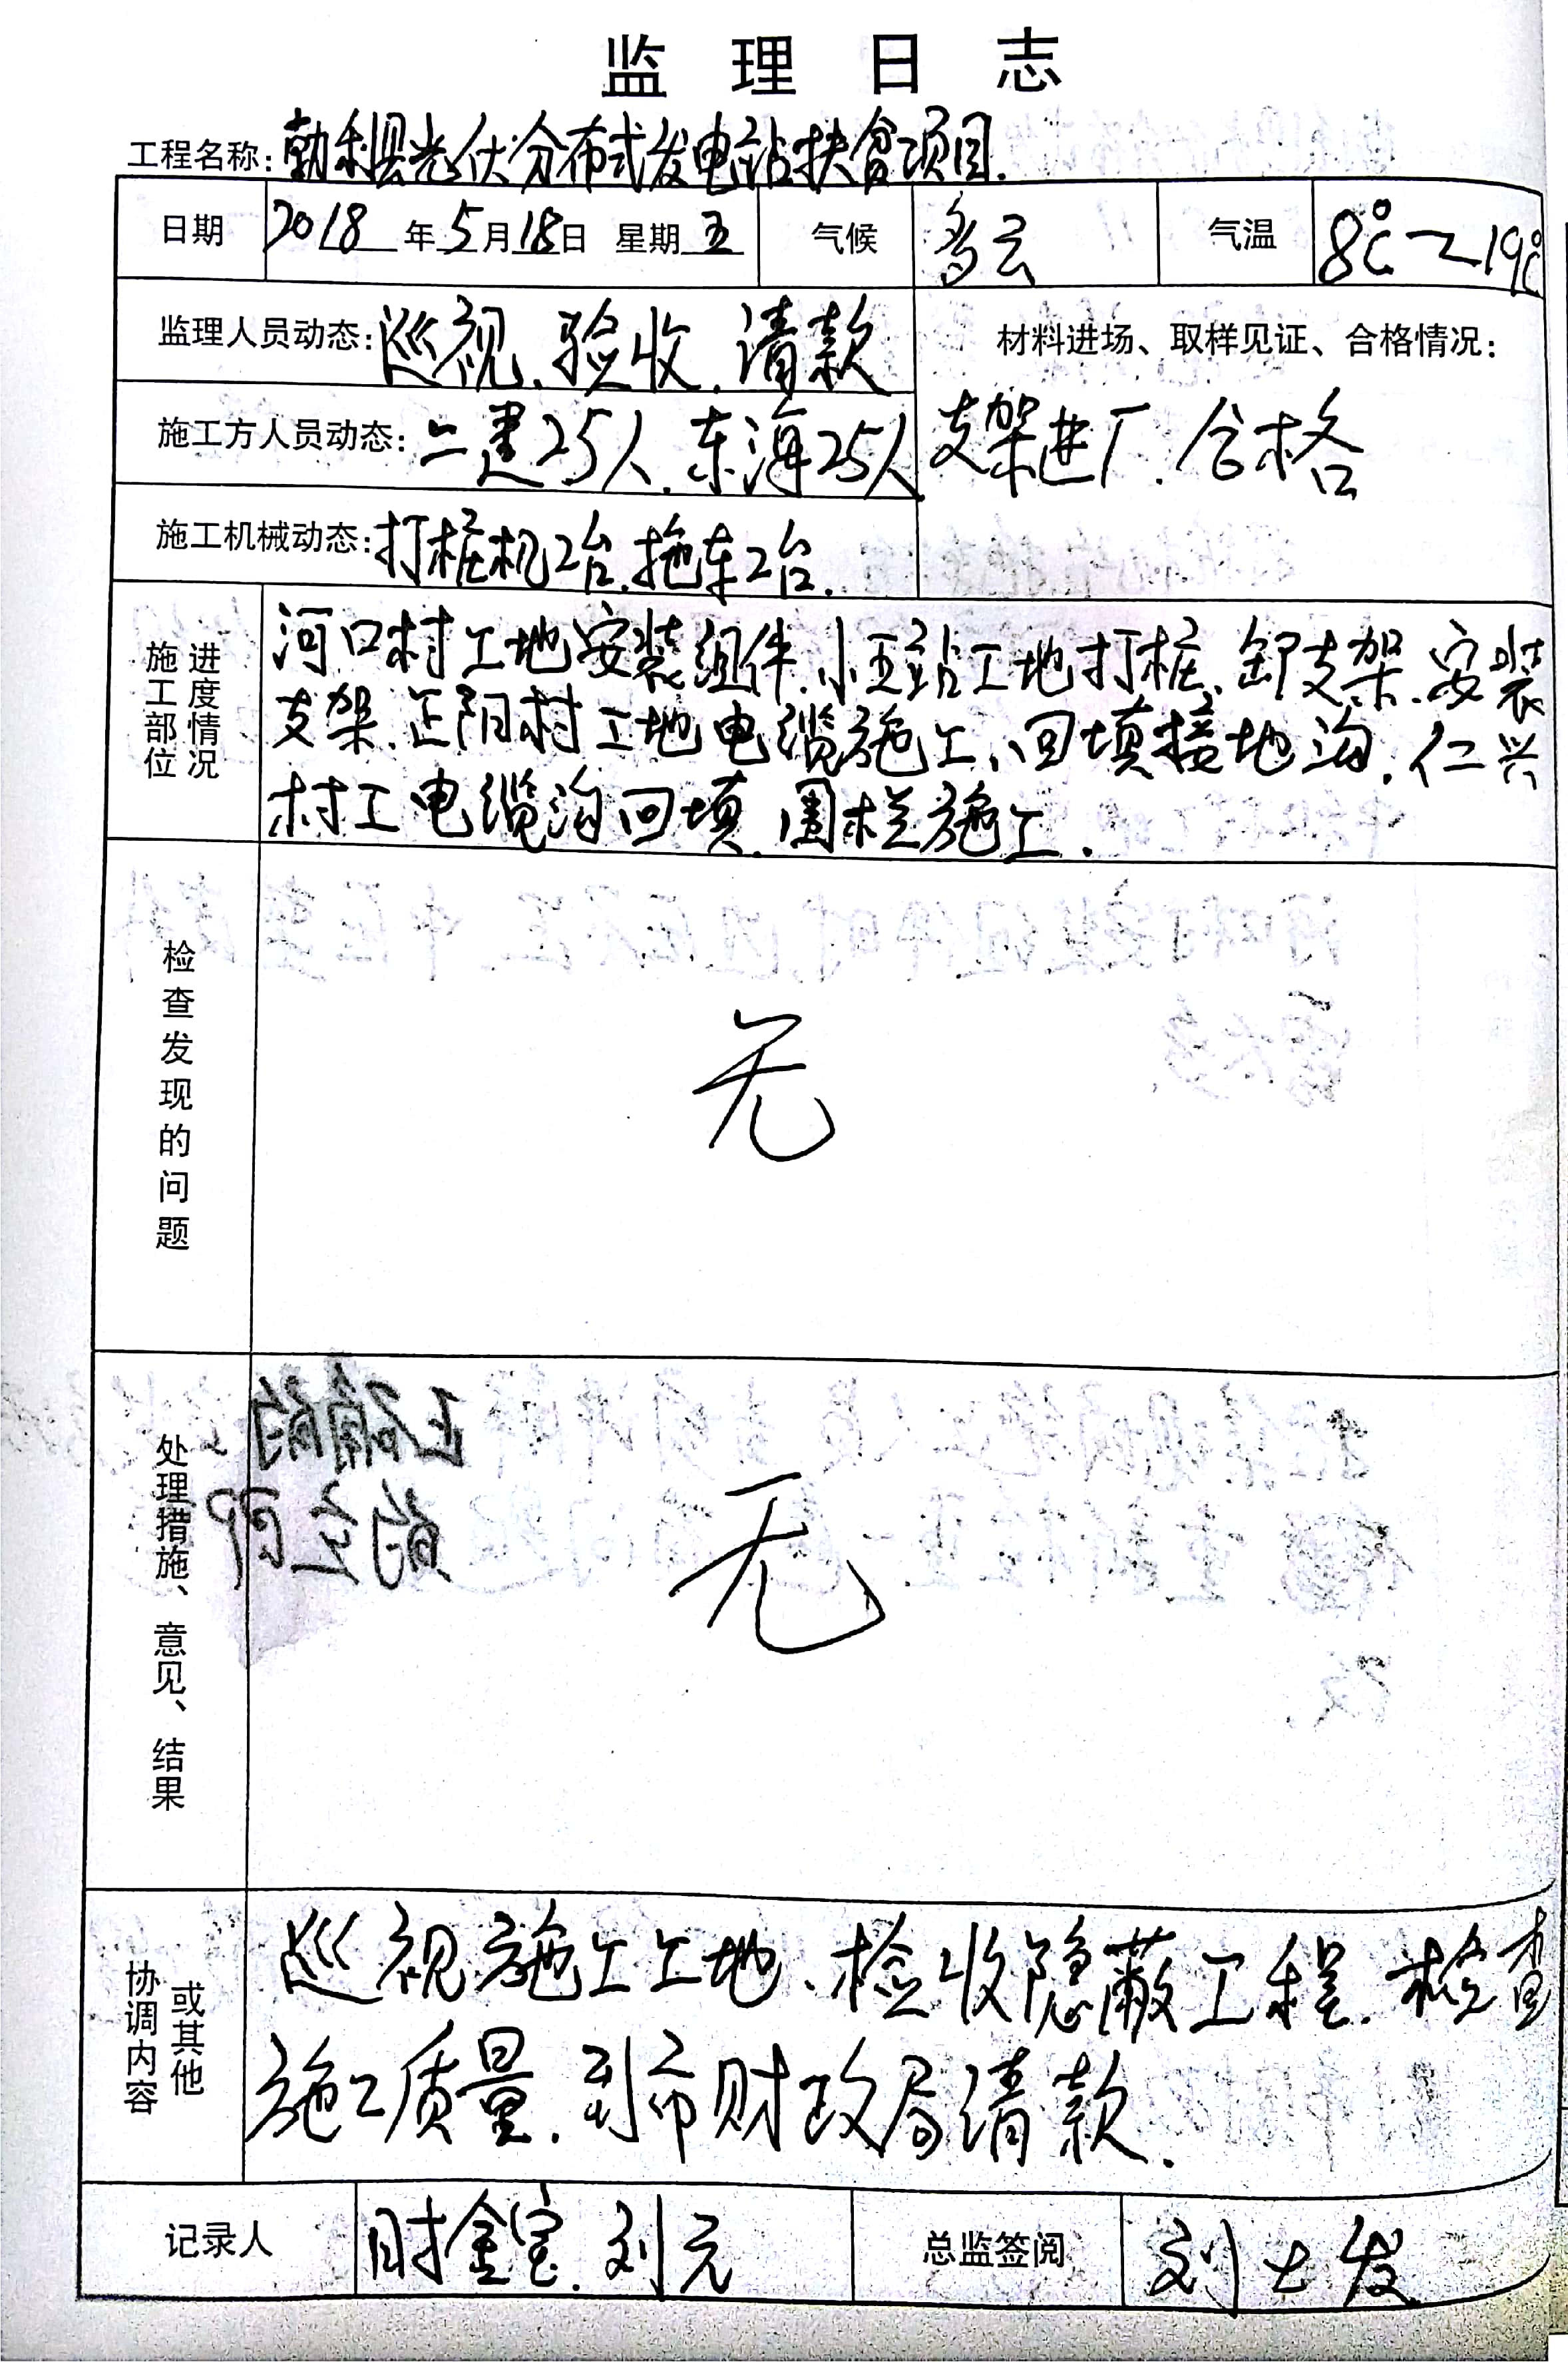 监理日志
工程名称:勃利县光伏分布式发电站扶贫项目.
日期 2018年5月18日 星期五 气候 多云 气温 8℃~19℃
监理人员动态:巡视、验收、请款
材料进场、取样见证、合格情况:
施工方人员动态:二建25人、东海25人
支架进厂、合格
施工机械动态:打桩机2台、拖车2台.
施工部位进度情况
河口村工地安装组件、小五站工地打桩、卸支架、安装
支架、正阳村工地电缆施工、回填接地沟、仁兴
村工电缆沟回填、围栏施工.
检查发现的问题
无
处理措施、意见、结果
无
协调内容或其他
巡视施工工地、检收隐蔽工程、检查
施工质量、到市财政局请款.
记录人 金宝、刘元 总监签阅 刘士发